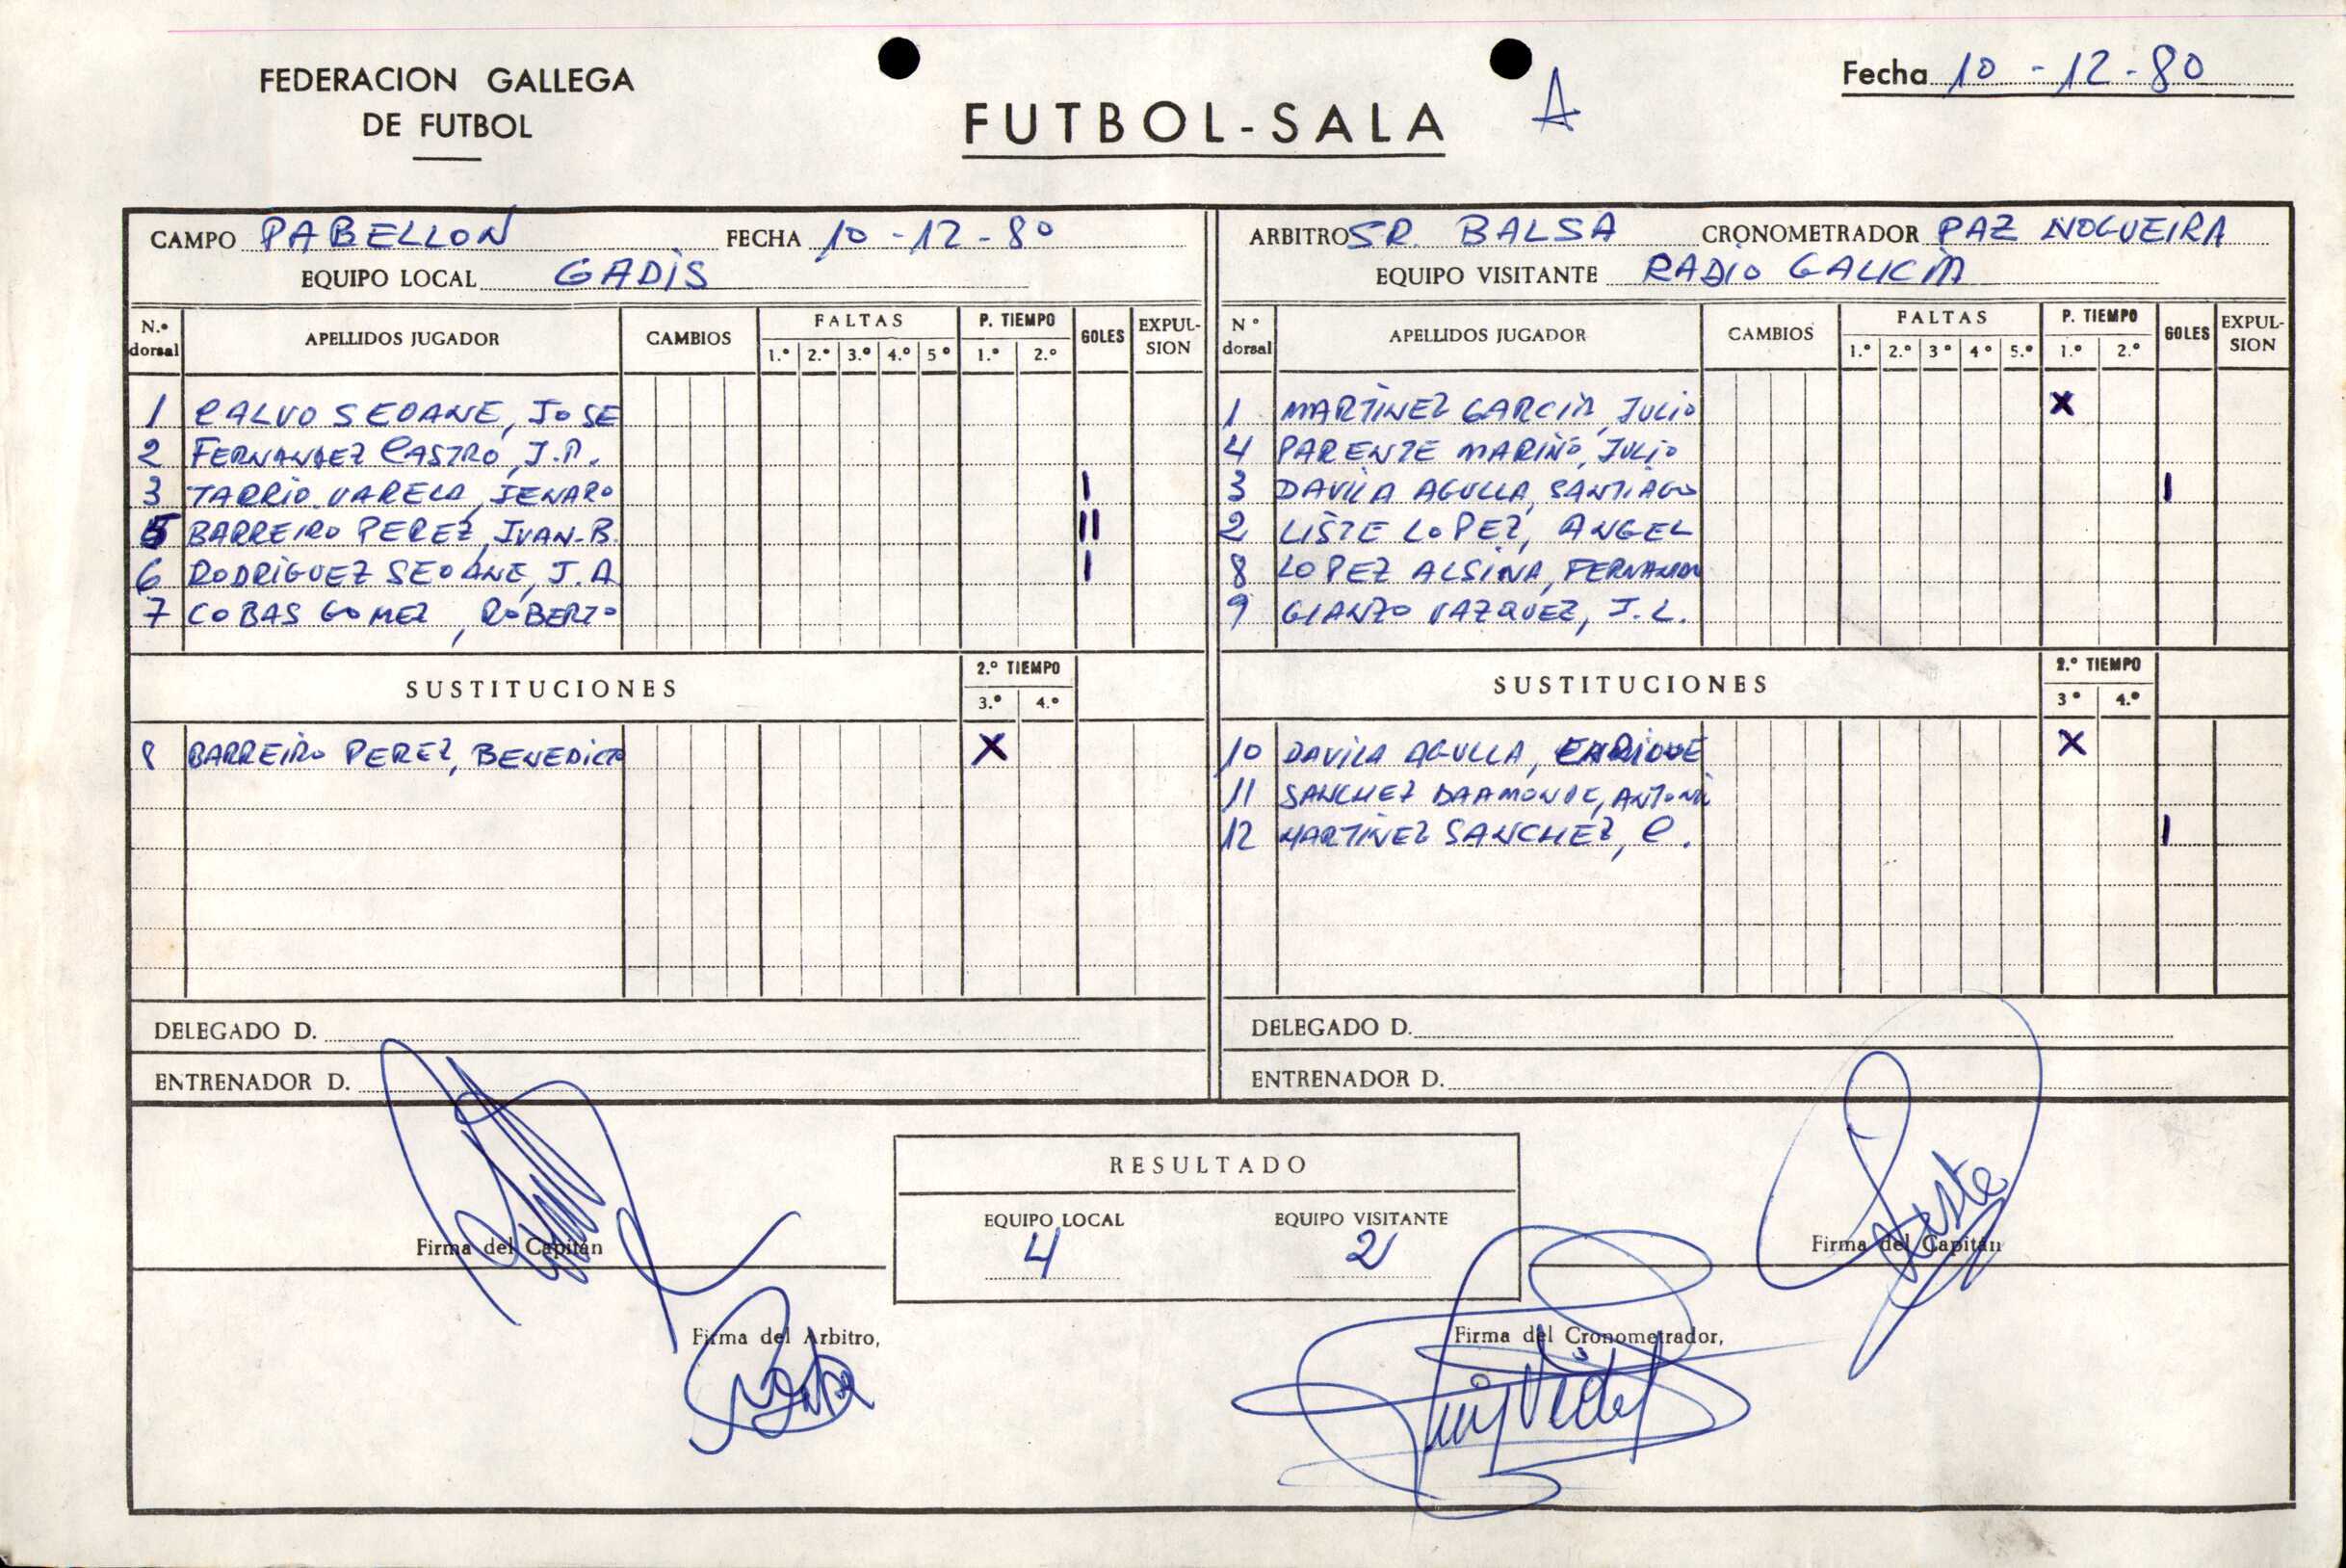 FEDERACION GALLEGA
DE FUTBOL
FUTBOL-SALA A
Fecha 10-12-80
CAMPO PABELLON FECHA 10-12-80
EQUIPO LOCAL GADIS
N.º dorsal APELLIDOS JUGADOR CAMBIOS FALTAS 1.º 2.º 3.º 4.º 5º P. TIEMPO 1.º 2.º GOLES EXPUL-SION
1 CALVO SEOANE, JOSE
2 FERNANDEZ CASTRO, J.P.
3 TARRIO VARELA, JENARO I
5 BARREIRO PEREZ, JUAN-B. II
6 RODRIGUEZ SEOANE, J.A I
7 COBAS GOMEZ, ROBERTO
SUSTITUCIONES 2.º TIEMPO 3.º 4.º
8 BARREIRO PEREZ, BENEDICTO X
DELEGADO D.
ENTRENADOR D.
ARBITRO SR. BALSA CRONOMETRADOR PAZ NOGUEIRA
EQUIPO VISITANTE RADIO GALICIA
Nº dorsal APELLIDOS JUGADOR CAMBIOS FALTAS 1.º 2.º 3º 4º 5.º P. TIEMPO 1.º 2.º GOLES EXPUL-SION
1 MARTINEZ GARCIA, JULIO X
4 PARENTE MARIÑO, JULIO
3 DAVILA AGULLA, SANTIAGO I
2 LISTE LOPEZ, ANGEL
8 LOPEZ ALSINA, FERNANDO
9 GIANZO VAZQUEZ, J.L.
SUSTITUCIONES 2.º TIEMPO 3º 4.º
10 DAVILA AGULLA, ENRIQUE X
11 SANCHEZ BAAMONDE, ANTONIO
12 MARTINEZ SANCHEZ, C. I
DELEGADO D.
ENTRENADOR D.
RESULTADO
EQUIPO LOCAL EQUIPO VISITANTE
4 2
Firma del Capitán
Firma del Capitán
Liste
Firma del Arbitro,
Firma del Cronometrador,